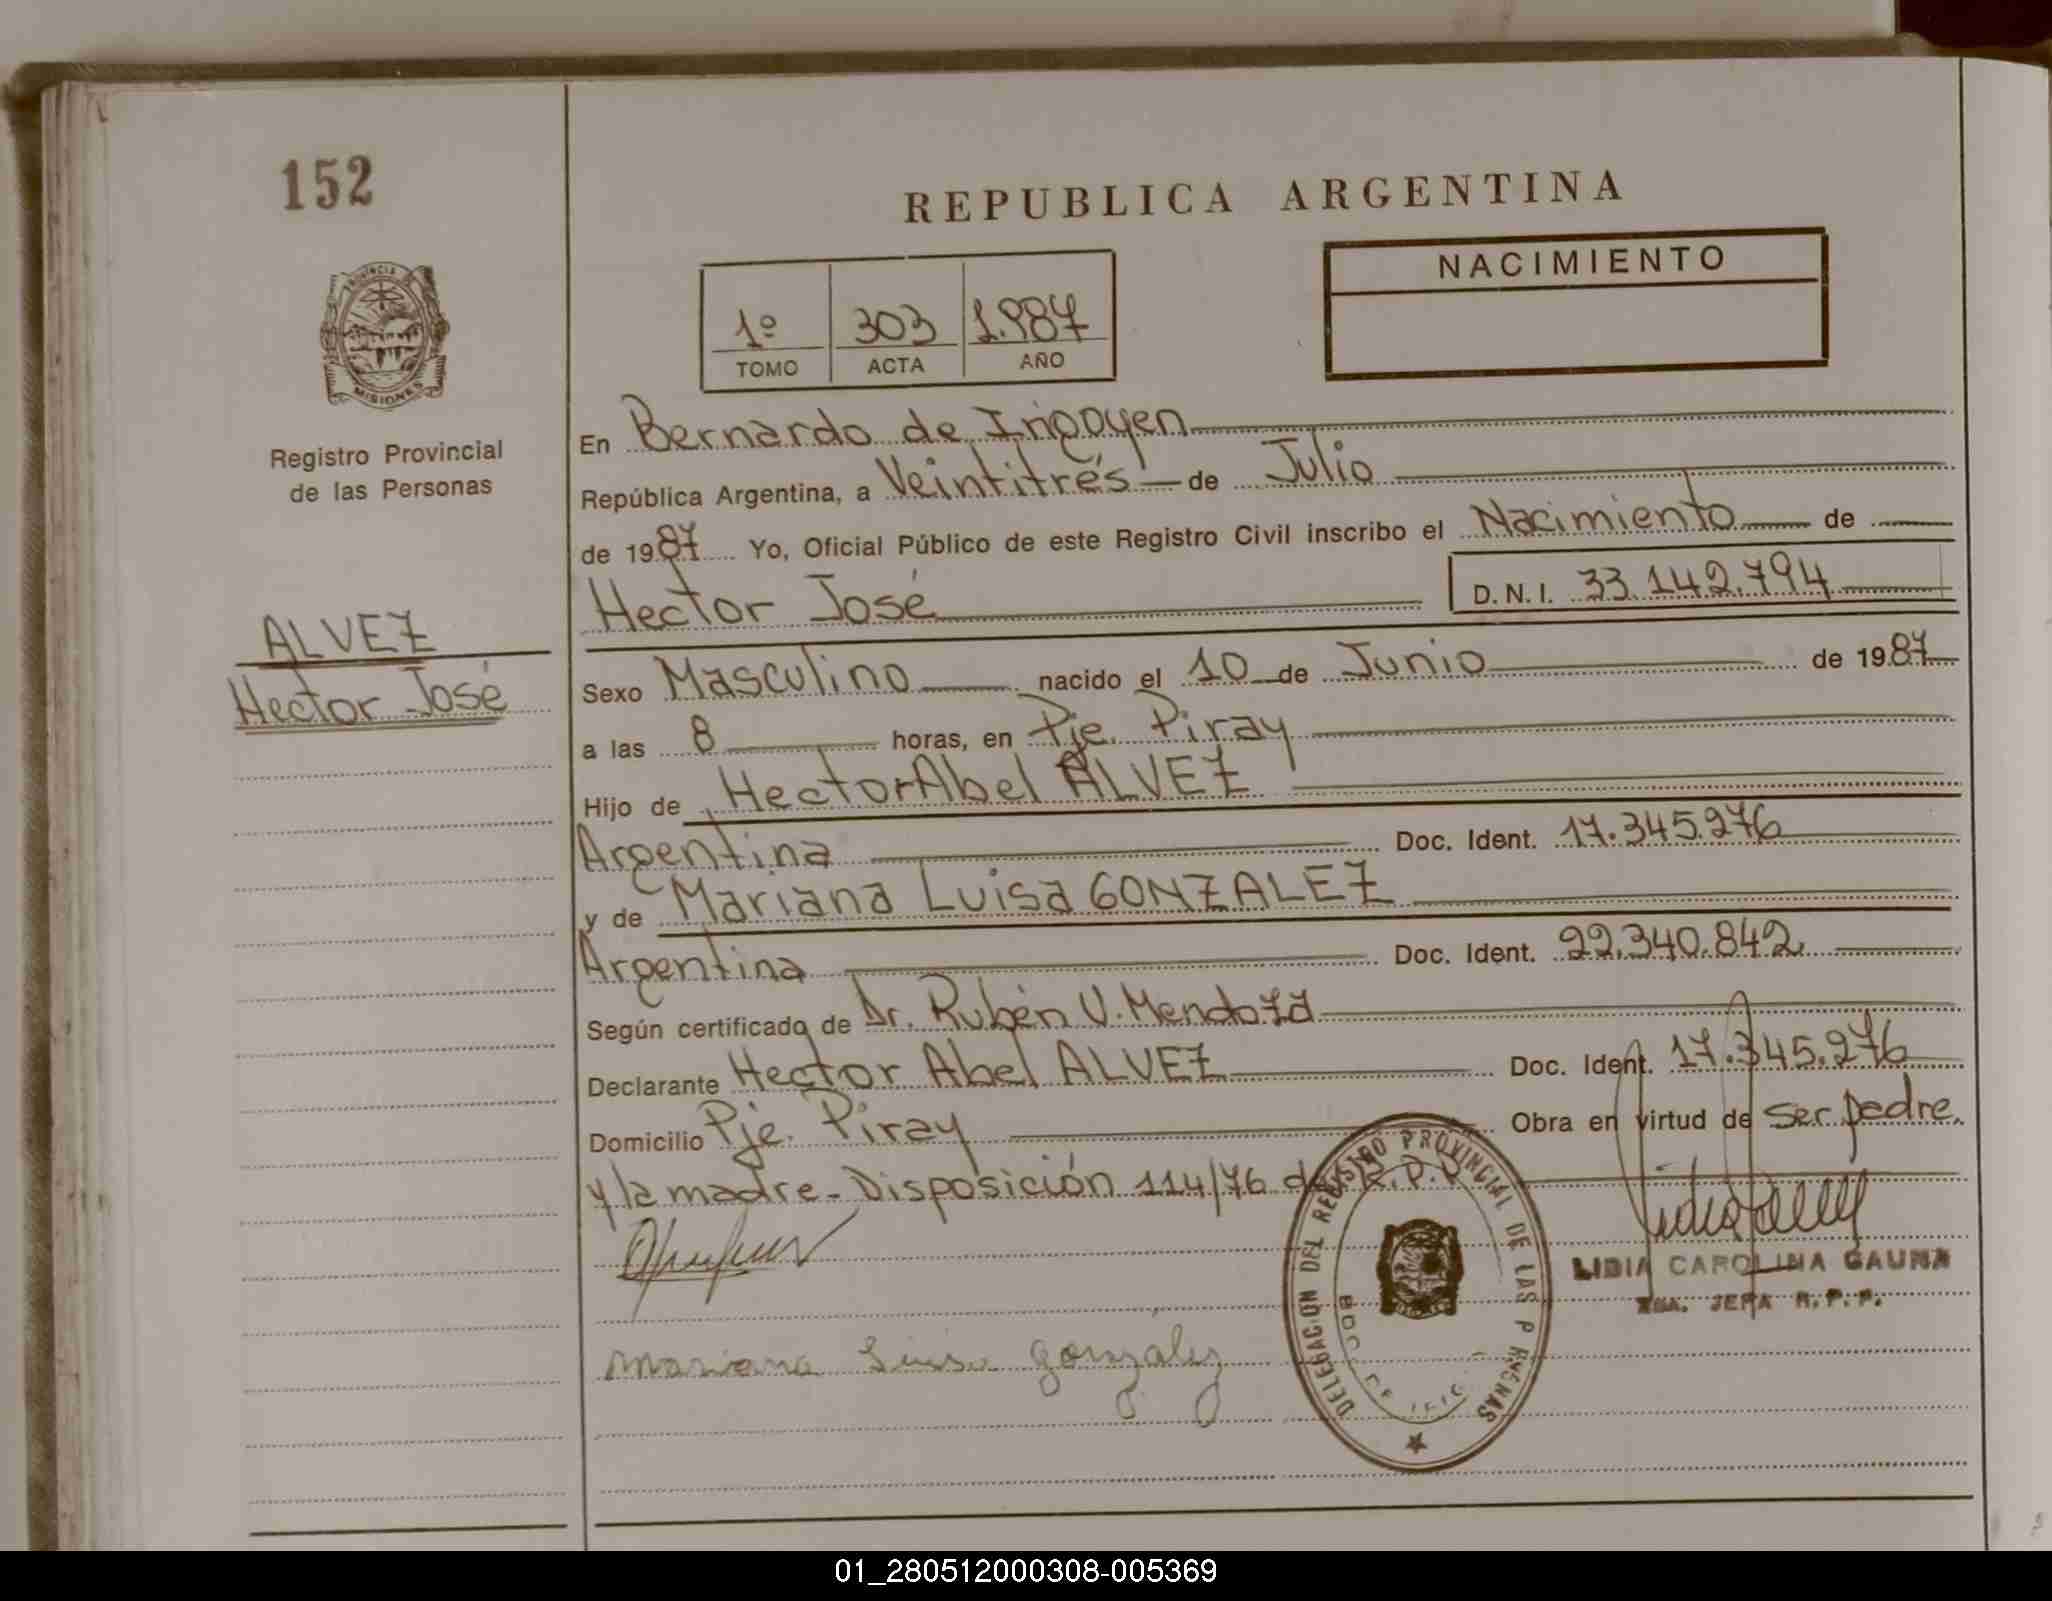 152
REPUBLICA ARGENTINA
NACIMIENTO
1º 303 1.987
TOMO ACTA AÑO
PROVINCIA DE
MISIONES
Registro Provincial
de las Personas
ALVEZ
Hector José
En Bernardo de Irigoyen
República Argentina, a Veintitrés de Julio
de 1987 Yo, Oficial Público de este Registro Civil inscribo el Nacimiento de
Hector José D.N.I. 33.142.794
Sexo Masculino nacido el 10 de Junio de 1987
a las 8 horas, en Pje. Piray
Hijo de Hector Abel ALVEZ
Argentina Doc. Ident. 17.345.276
y de Mariana Luisa GONZALEZ
Argentina Doc. Ident. 22.340.842
Según certificado de Dr. Rubén V. Mendoza
Declarante Hector Abel ALVEZ Doc. Ident. 17.345.276
Domicilio Pje. Piray Obra en virtud de ser padre
y la madre - Disposición 114/76 del R.P.P
Mariana Luisa González
DELEGACION DEL REGISTRO PROVINCIAL DE LAS PERSONAS
BDO. DE
LIDIA CAROLINA GAUNA
JEFA R.P.P.
01_280512000308-005369